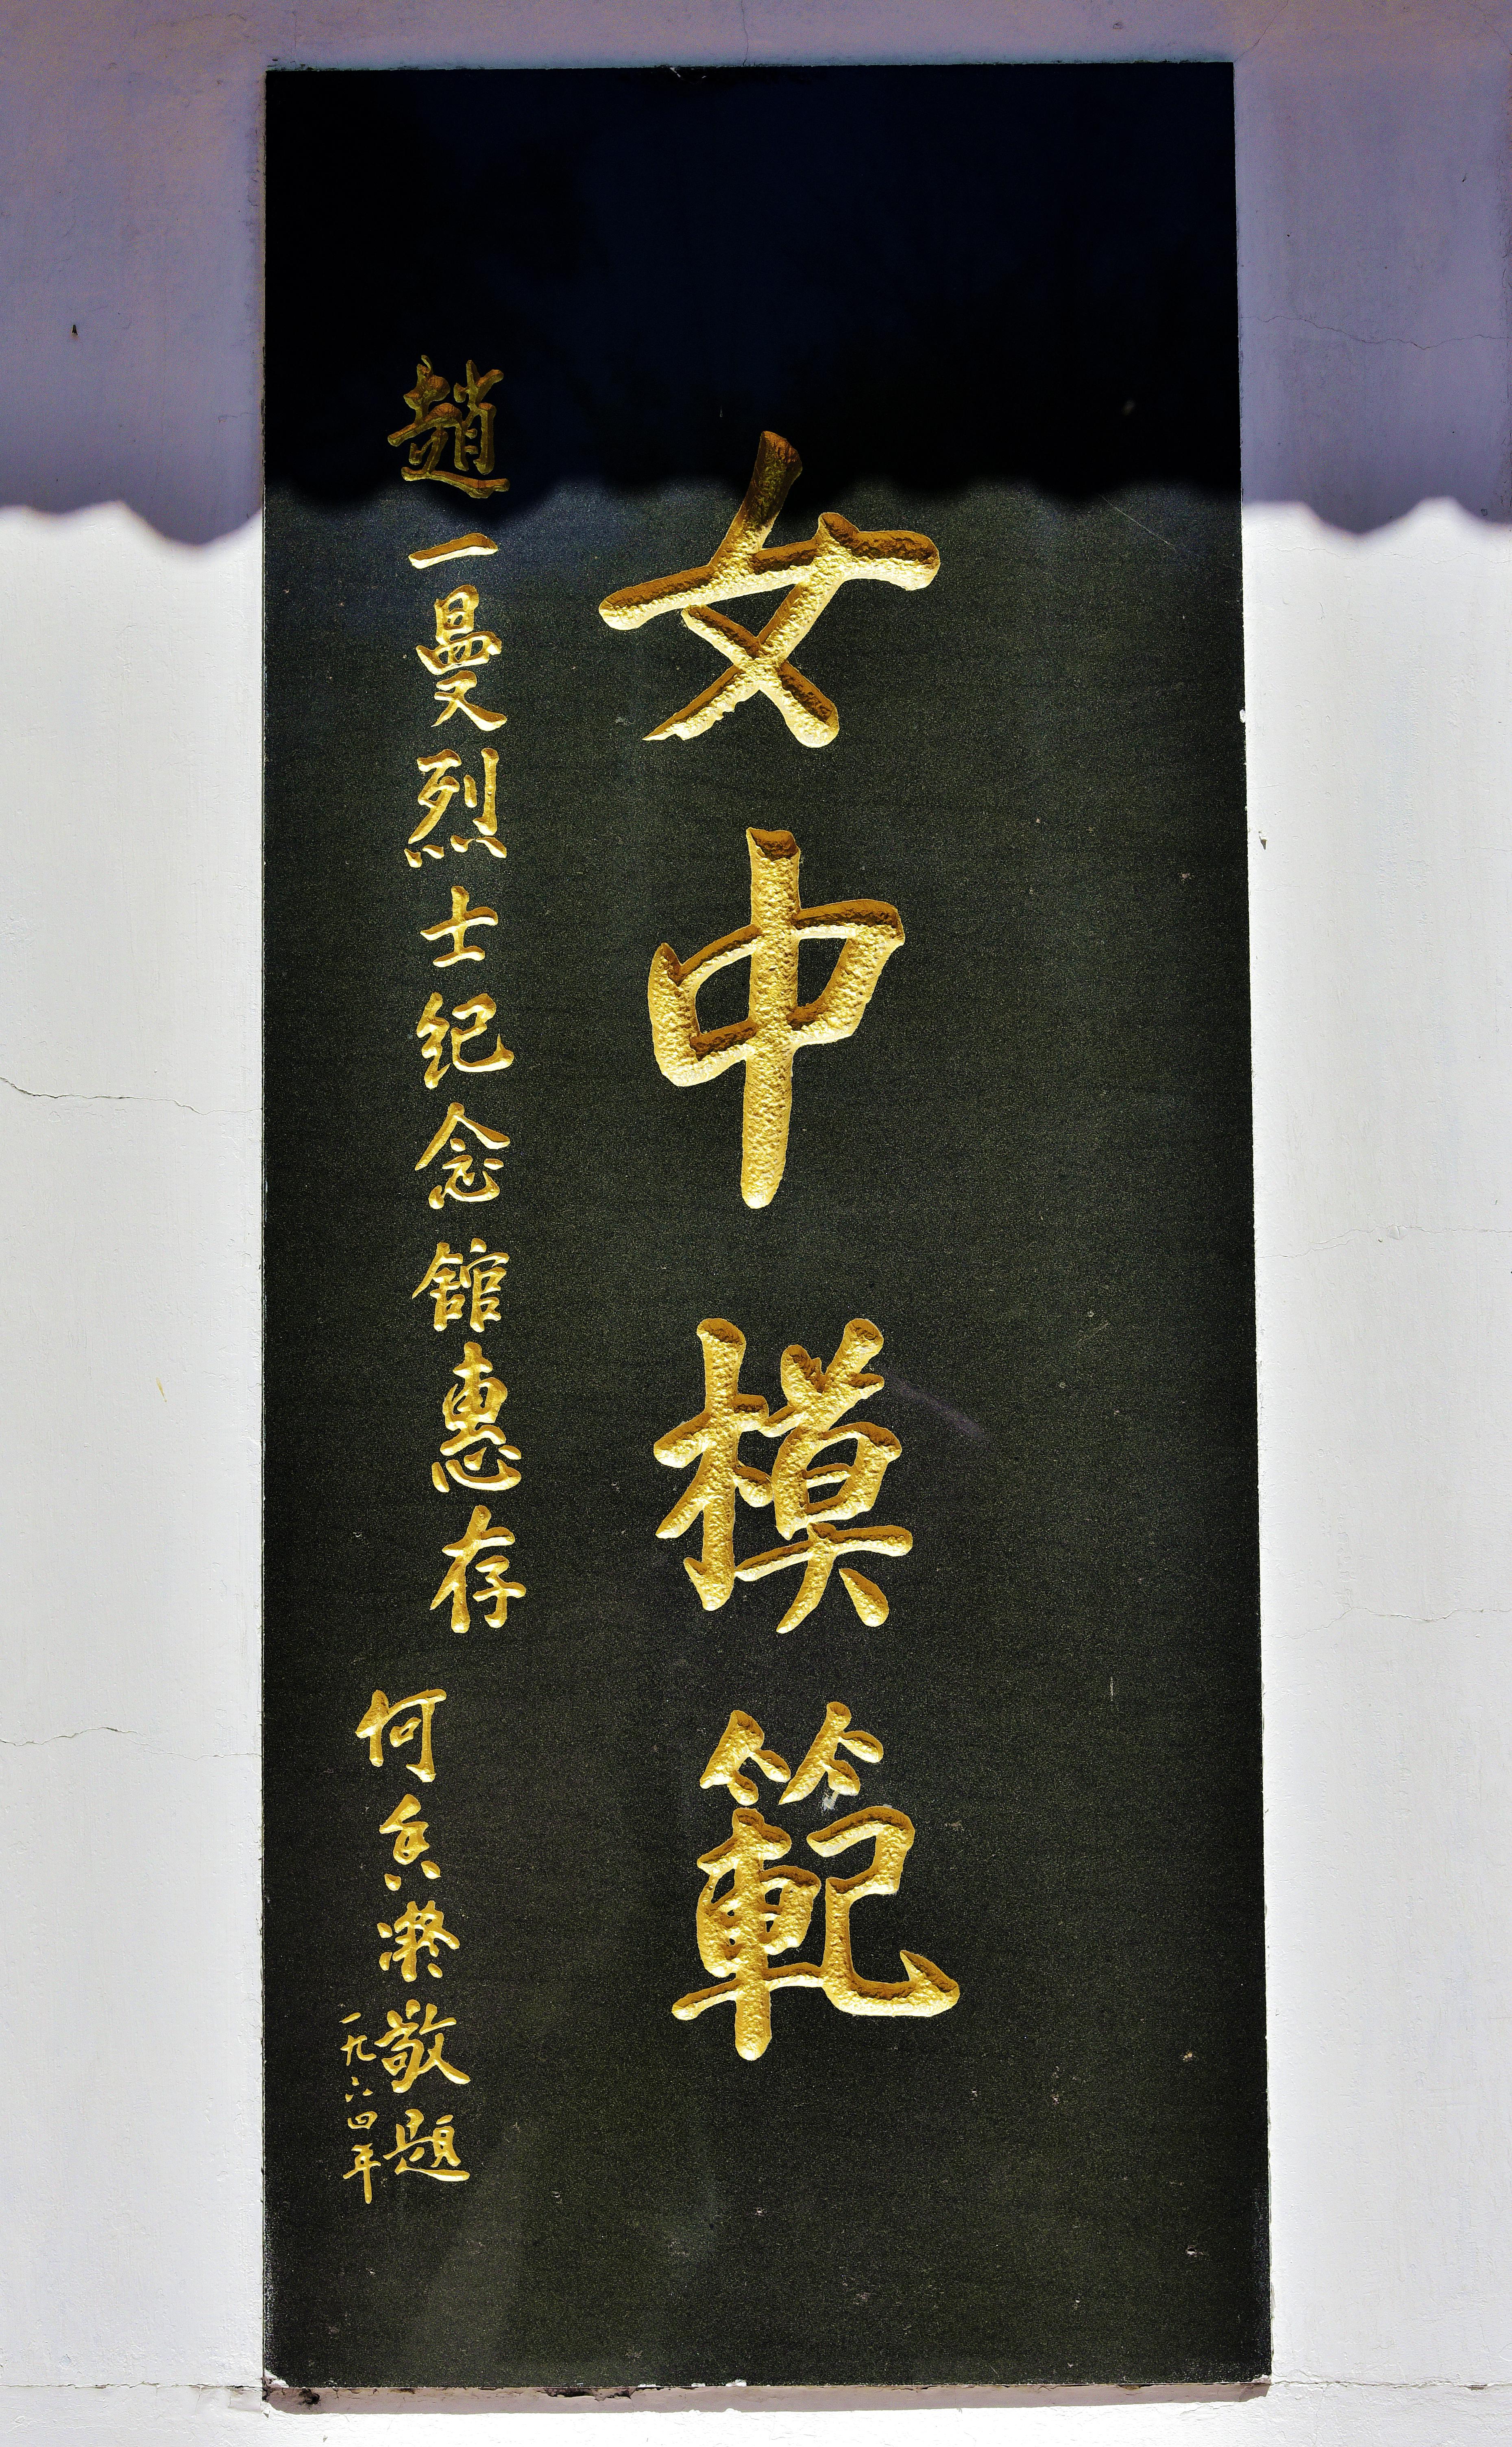 女中模範
趙一曼烈士纪念館惠存
何香凝敬題
一九六四年